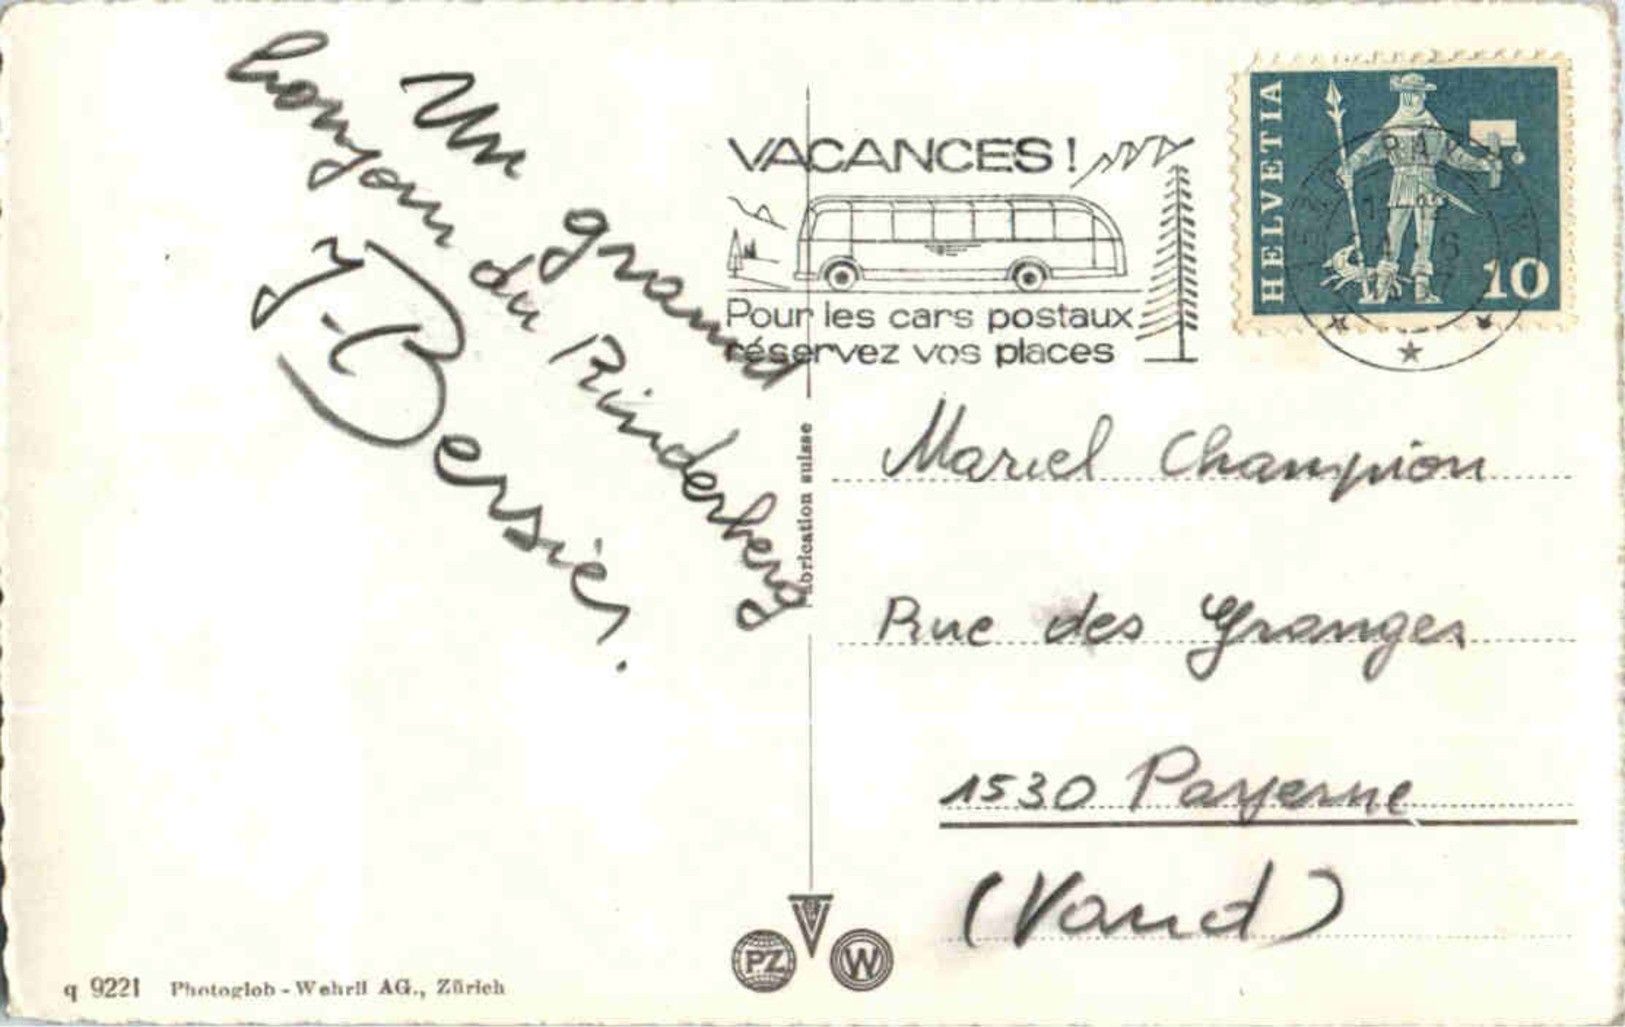 Un grand
bonjour du Rinderberg
J. Bersier.
VACANCES!
Pour les cars postaux
réservez vos places
HELVETIA
10
Fabrication suisse
Mariel Champion
Rue des Granges
1530 Payerne
(Vaud)
PZ
W
q 9221 Photoglob-Wehrli AG., Zürich